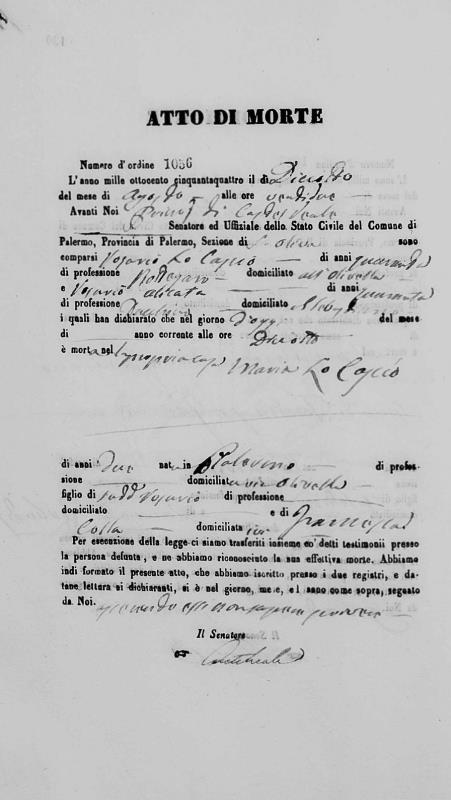 ATTO DI MORTE
Numero d'ordine 1036
L'anno mille ottocento cinquantaquattro il dì Dieciotto
del mese di Agosto alle ore ventidue
Avanti Noi
Senatore ed Uffiziale dello Stato Civile del Comune di
Palermo, Provincia di Palermo, Sezione di sono
comparsi Rosario Lo Cascio di anni quaranta
di professione Bottegaro domiciliato all'Olivella
e Rosario di anni quaranta
di professione domiciliato
i quali han dichiarato che nel giorno d'oggi del mese
di anno corrente alle ore Dieciotto
è morta nel Maria Lo Cascio
di anni due nata in Palermo di profes-
sione domiciliata via Olivella
figlio di Rosario di professione
domiciliato e di Francesca
Colla domiciliata ivi
Per esecuzione della legge ci siamo trasferiti insieme co' detti testimonii presso
la persona defunta, e ne abbiamo riconosciuto la sua effettiva morte. Abbiamo
indi formato il presente atto, che abbiamo iscritto presso i due registri, e da-
tane lettura ai dichiaranti, si è nel giorno, mese, e l anno come sopra, segnato
da Noi.
Il Senatore